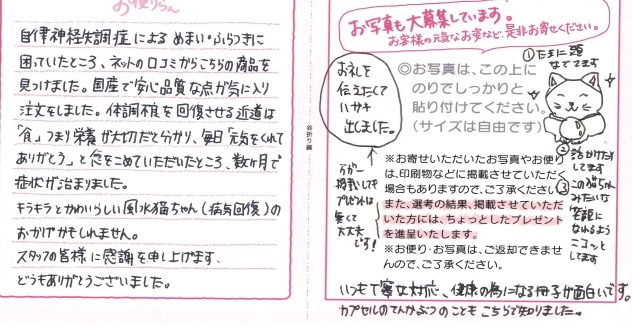 お便りらん
自律神経失調症による めまい・ふらつきに
困っていたところ、ネットの口コミからこちらの商品を
見つけました。国産で安心品質な点が気に入り
注文をしました。体調不良を回復させる近道は
「食」つまり栄養が大切だと分かり、毎日「元気をくれて
ありがとう」と念をこめていただいたところ、数か月で
症状が治まりました。
キラキラとかわいらしい風水猫ちゃん(病気回復)の
おかげかもしれません。
スタッフの皆様に感謝を申し上げます、
どうもありがとうございました。
谷折り線
お写真も大募集しています。
お客様の元気なお姿など、是非お寄せください。
お礼を
伝えたくて
ハガキ
出しました。
◎お写真は、この上に
のりでしっかりと
貼り付けてください。
(サイズは自由です)
①たまに頭
なでてます
②話かけたり
してます
③この猫ちゃん
みたいな
笑顔に
なれるよう
ニコッと
してます
掲載しても
プレゼントは
無くて
大丈夫
です!
※お寄せいただいたお写真やお便り
は、印刷物などに掲載させていただく
場合もありますので、ご了承ください。
また、選考の結果、掲載させていただ
いた方には、ちょっとしたプレゼント
を進呈いたします。
※お便り・お写真は、ご返却できませ
んので、ご了承ください。
いつも丁寧な対応、健康の為になる冊子が面白いです。
カプセルのてんかぶつのことも こちらで知りました。